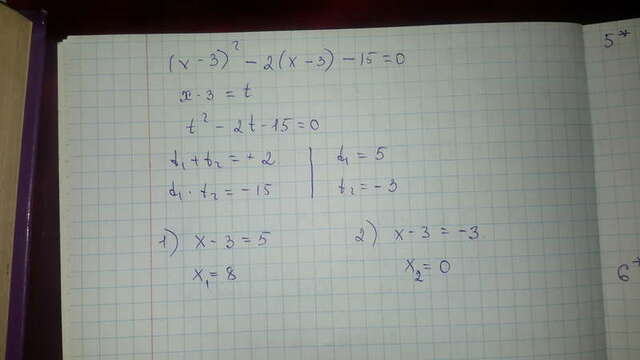 (x - 3)² - 2(x - 3) - 15 = 0
x - 3 = t
t² - 2t - 15 = 0
t₁ + t₂ = + 2
t₁ · t₂ = - 15
t₁ = 5
t₂ = - 3
1) x - 3 = 5
x₁ = 8
2) x - 3 = -3
x₂ = 0
5*
6*